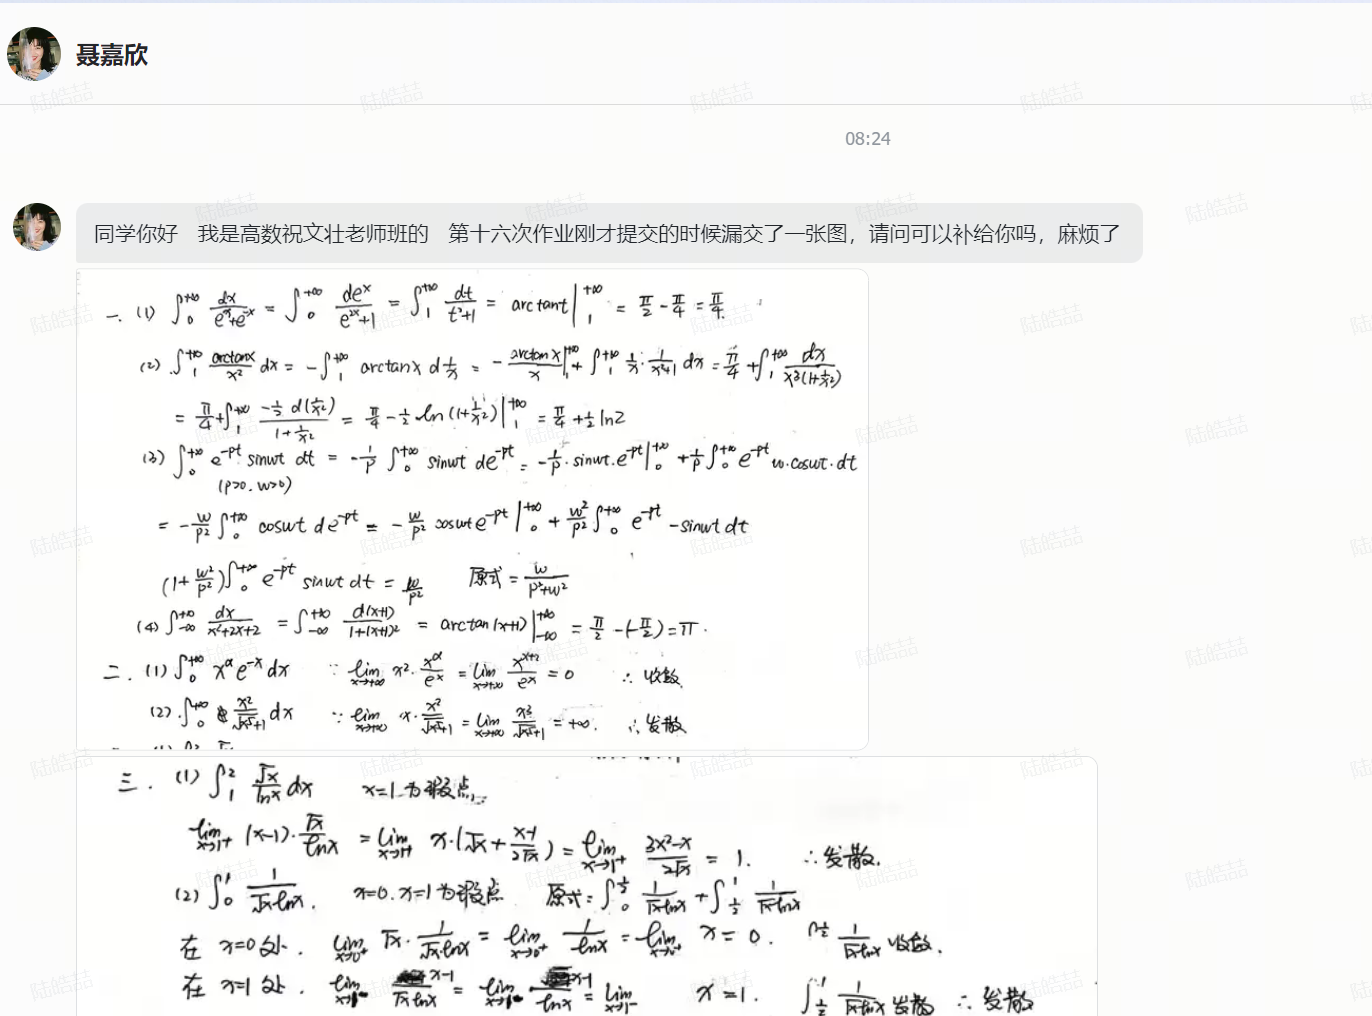 聂嘉欣
08:24
同学你好 我是高数祝文壮老师班的 第十六次作业刚才提交的时候漏交了一张图，请问可以补给你吗，麻烦了
一.(1) ∫₀^{+∞} dx/(e^x+e^{-x}) = ∫₀^{+∞} de^x/(e^{2x}+1) = ∫₁^{+∞} dt/(t²+1) = arctant|₁^{+∞} = π/2 - π/4 = π/4.
(2) ∫₁^{+∞} arctanx/x² dx = -∫₁^{+∞} arctanx d 1/x = - arctanx/x|₁^{+∞} + ∫₁^{+∞} 1/x · 1/(x²+1) dx = π/4 + ∫₁^{+∞} dx/(x³(1+1/x²))
= π/4 + ∫₁^{+∞} -½ d(1/x²)/(1+1/x²) = π/4 - ½ ln(1+1/x²)|₁^{+∞} = π/4 + ½ ln2
(3) ∫₀^{+∞} e^{-pt} sinwt dt = -1/p ∫₀^{+∞} sinwt de^{-pt} = -1/p · sinwt · e^{-pt}|₀^{+∞} + 1/p ∫₀^{+∞} e^{-pt} w · coswt · dt
(p>0. w>0)
= -w/p² ∫₀^{+∞} coswt de^{-pt} = -w/p² coswt e^{-pt}|₀^{+∞} + w²/p² ∫₀^{+∞} e^{-pt} -sinwt dt
(1+w²/p²)∫₀^{+∞} e^{-pt} sinwt dt = w/p² 原式 = w/(p²+w²)
(4) ∫_{-∞}^{+∞} dx/(x²+2x+2) = ∫_{-∞}^{+∞} d(x+1)/(1+(x+1)²) = arctan(x+1)|_{-∞}^{+∞} = π/2 - (-π/2) = π.
二.(1) ∫₀^{+∞} x^α e^{-x} dx ∵ lim_{x→+∞} x² · x^α/e^x = lim_{x→+∞} x^{α+2}/e^x = 0 ∴ 收敛
(2) ∫₀^{+∞} x²/√(x⁵+1) dx ∵ lim_{x→+∞} x · x²/√(x⁵+1) = lim_{x→+∞} x³/√(x⁵+1) = +∞. ∴ 发散
三.(1) ∫₁² √x/lnx dx x=1为瑕点.
lim_{x→1⁺} (x-1) · √x/lnx = lim_{x→1⁺} x · (√x + (x-1)/(2√x)) = lim_{x→1⁺} (3x²-x)/(2√x) = 1. ∴ 发散.
(2) ∫₀¹ 1/(√x·lnx). x=0. x=1为瑕点 原式 = ∫₀^{1/2} 1/(√x·lnx) + ∫_{1/2}^1 1/(√x·lnx)
在 x=0处. lim_{x→0⁺} √x · 1/(√x·lnx) = lim_{x→0⁺} 1/lnx = lim_{x→0⁺} x = 0. ∫^{1/2} 1/(√x·lnx) 收敛.
在 x=1处. lim_{x→1⁻} (x-1)/(√x·lnx) = lim_{x→1⁻} (x-1)/lnx = lim_{x→1⁻} x = 1. ∫_{1/2}^1 1/(√x·lnx) 发散 ∴ 发散
陆皓喆